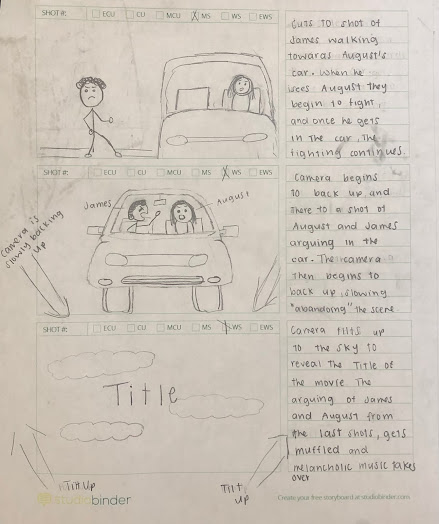 SHOT #: ECU CU MCU MS WS EWS
Cuts to shot of
James walking
towards August's
car. When he
sees August they
begin to fight,
and once he gets
in the car, the
fighting continues.
SHOT #: ECU CU MCU MS WS EWS
James
August
Camera is
slowly backing
up
Camera begins
to back up, and
there to a shot of
August and James
arguing in the
car. The camera
then begins to
back up, slowing
"abandoing" the scene
SHOT #: ECU CU MCU MS WS EWS
Title
Tilt Up
Tilt
up
Camera tilts up
to the sky to
reveal the Title of
the movie. The
arguing of James
and August from
the last shots, gets
muffled and
melancholic music takes
over
studiobinder
Create your free storyboard at studiobinder.com.